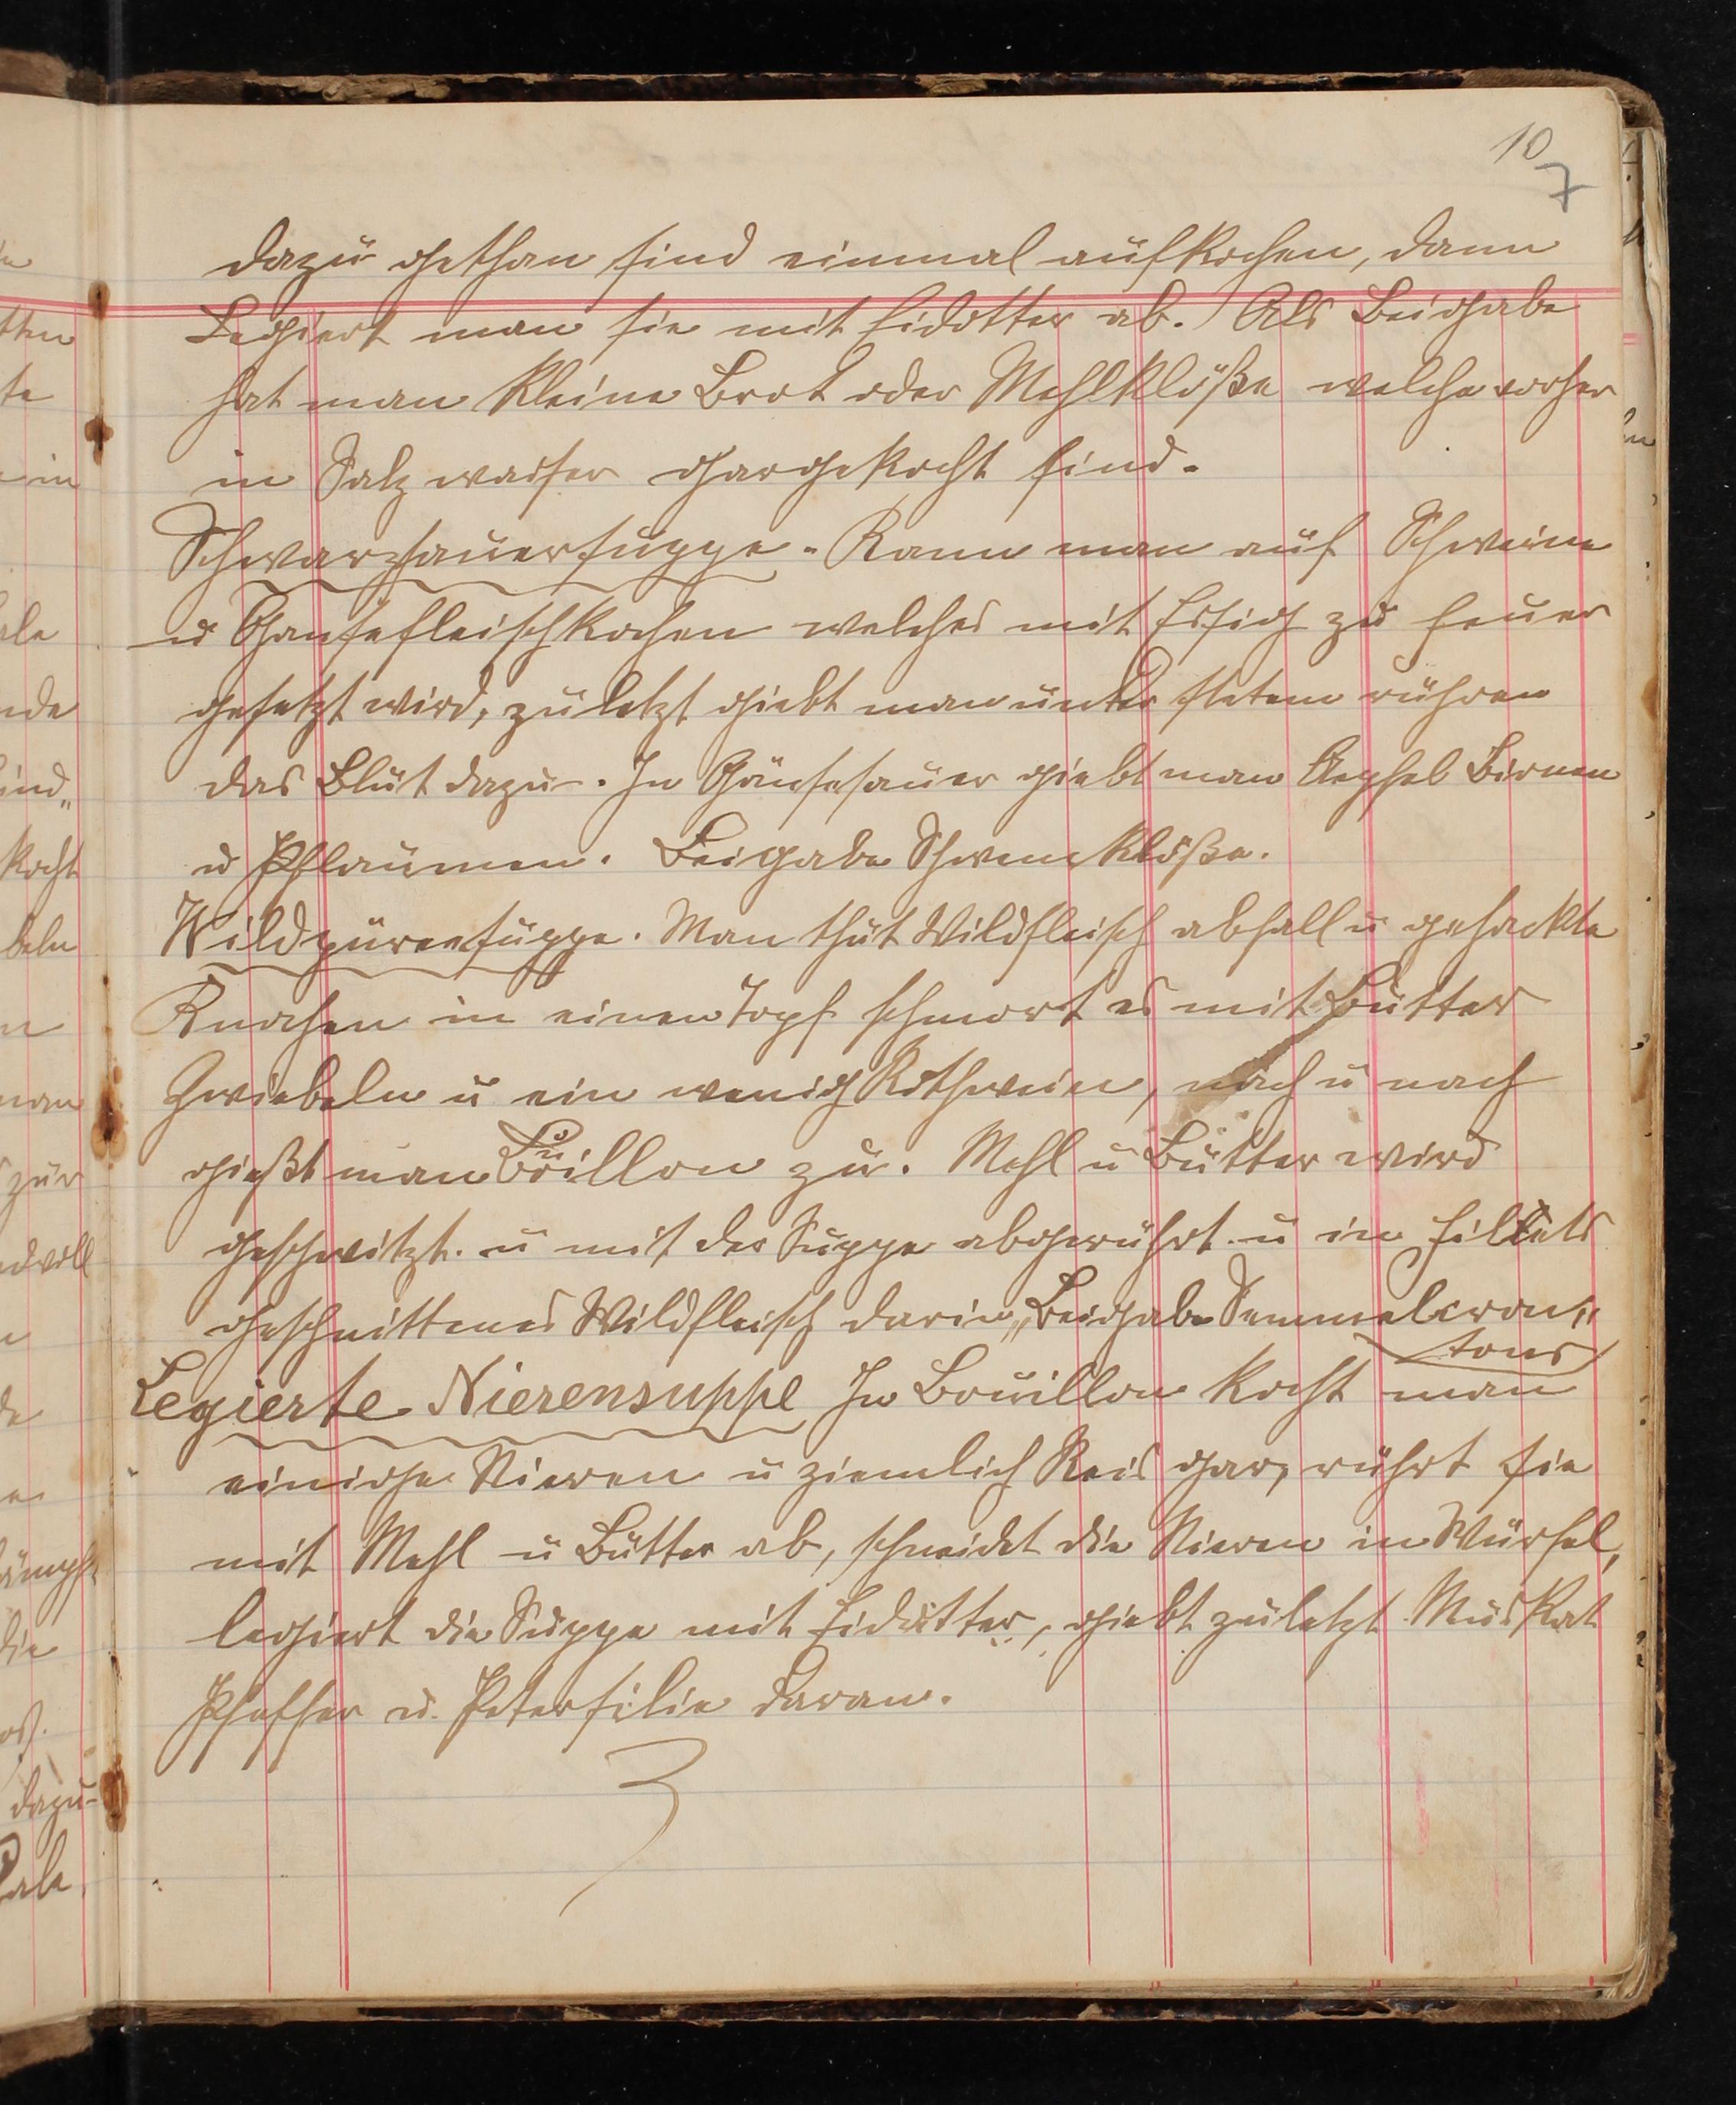 10
7
dazu gethan sind einmal aufkochen, dann
Legiert man sie mit Eidotter ab. Als Beigabe
hat man kleine Brot oder Mehlklöße welche vorher
in Salzwasser gargekocht sind.
Schwarzsauersuppe. Kann man auf Schweine
u Gansefleisch kochen welches mit Essig zu feuer
gesetzt wird, zuletzt giebt man unter stetem rühren
das Blut dazu. In Gänsesauer giebt man Aepfel Birnen
u Pflaumen. Beigabe Schwemklöße.
Wildpüreesuppe. Man thut Wildfleisch abfall u gehackte
Knochen in einen Topf schmort es mit Butter
Zwiebeln u ein wenig Rothwein, nach u nach
gießt man Bouillon zu. Mehl u Butter wird
geschwitzt. u mit der Suppe abgerührt. u in Fillets
geschnittenes Wildfleisch darin„ Beigabe Semmelcrou„
tons
Legierte Nierensuppe In Bouillon kocht man
einige Nieren u ziemlich Reis gar, rührt sie
mit Mehl u Butter ab, schneidet die Nieren in Würfel,
legiert die Suppe mit Eidotter, giebt zuletzt Muskat
Pfeffer u. Petersilie daran.